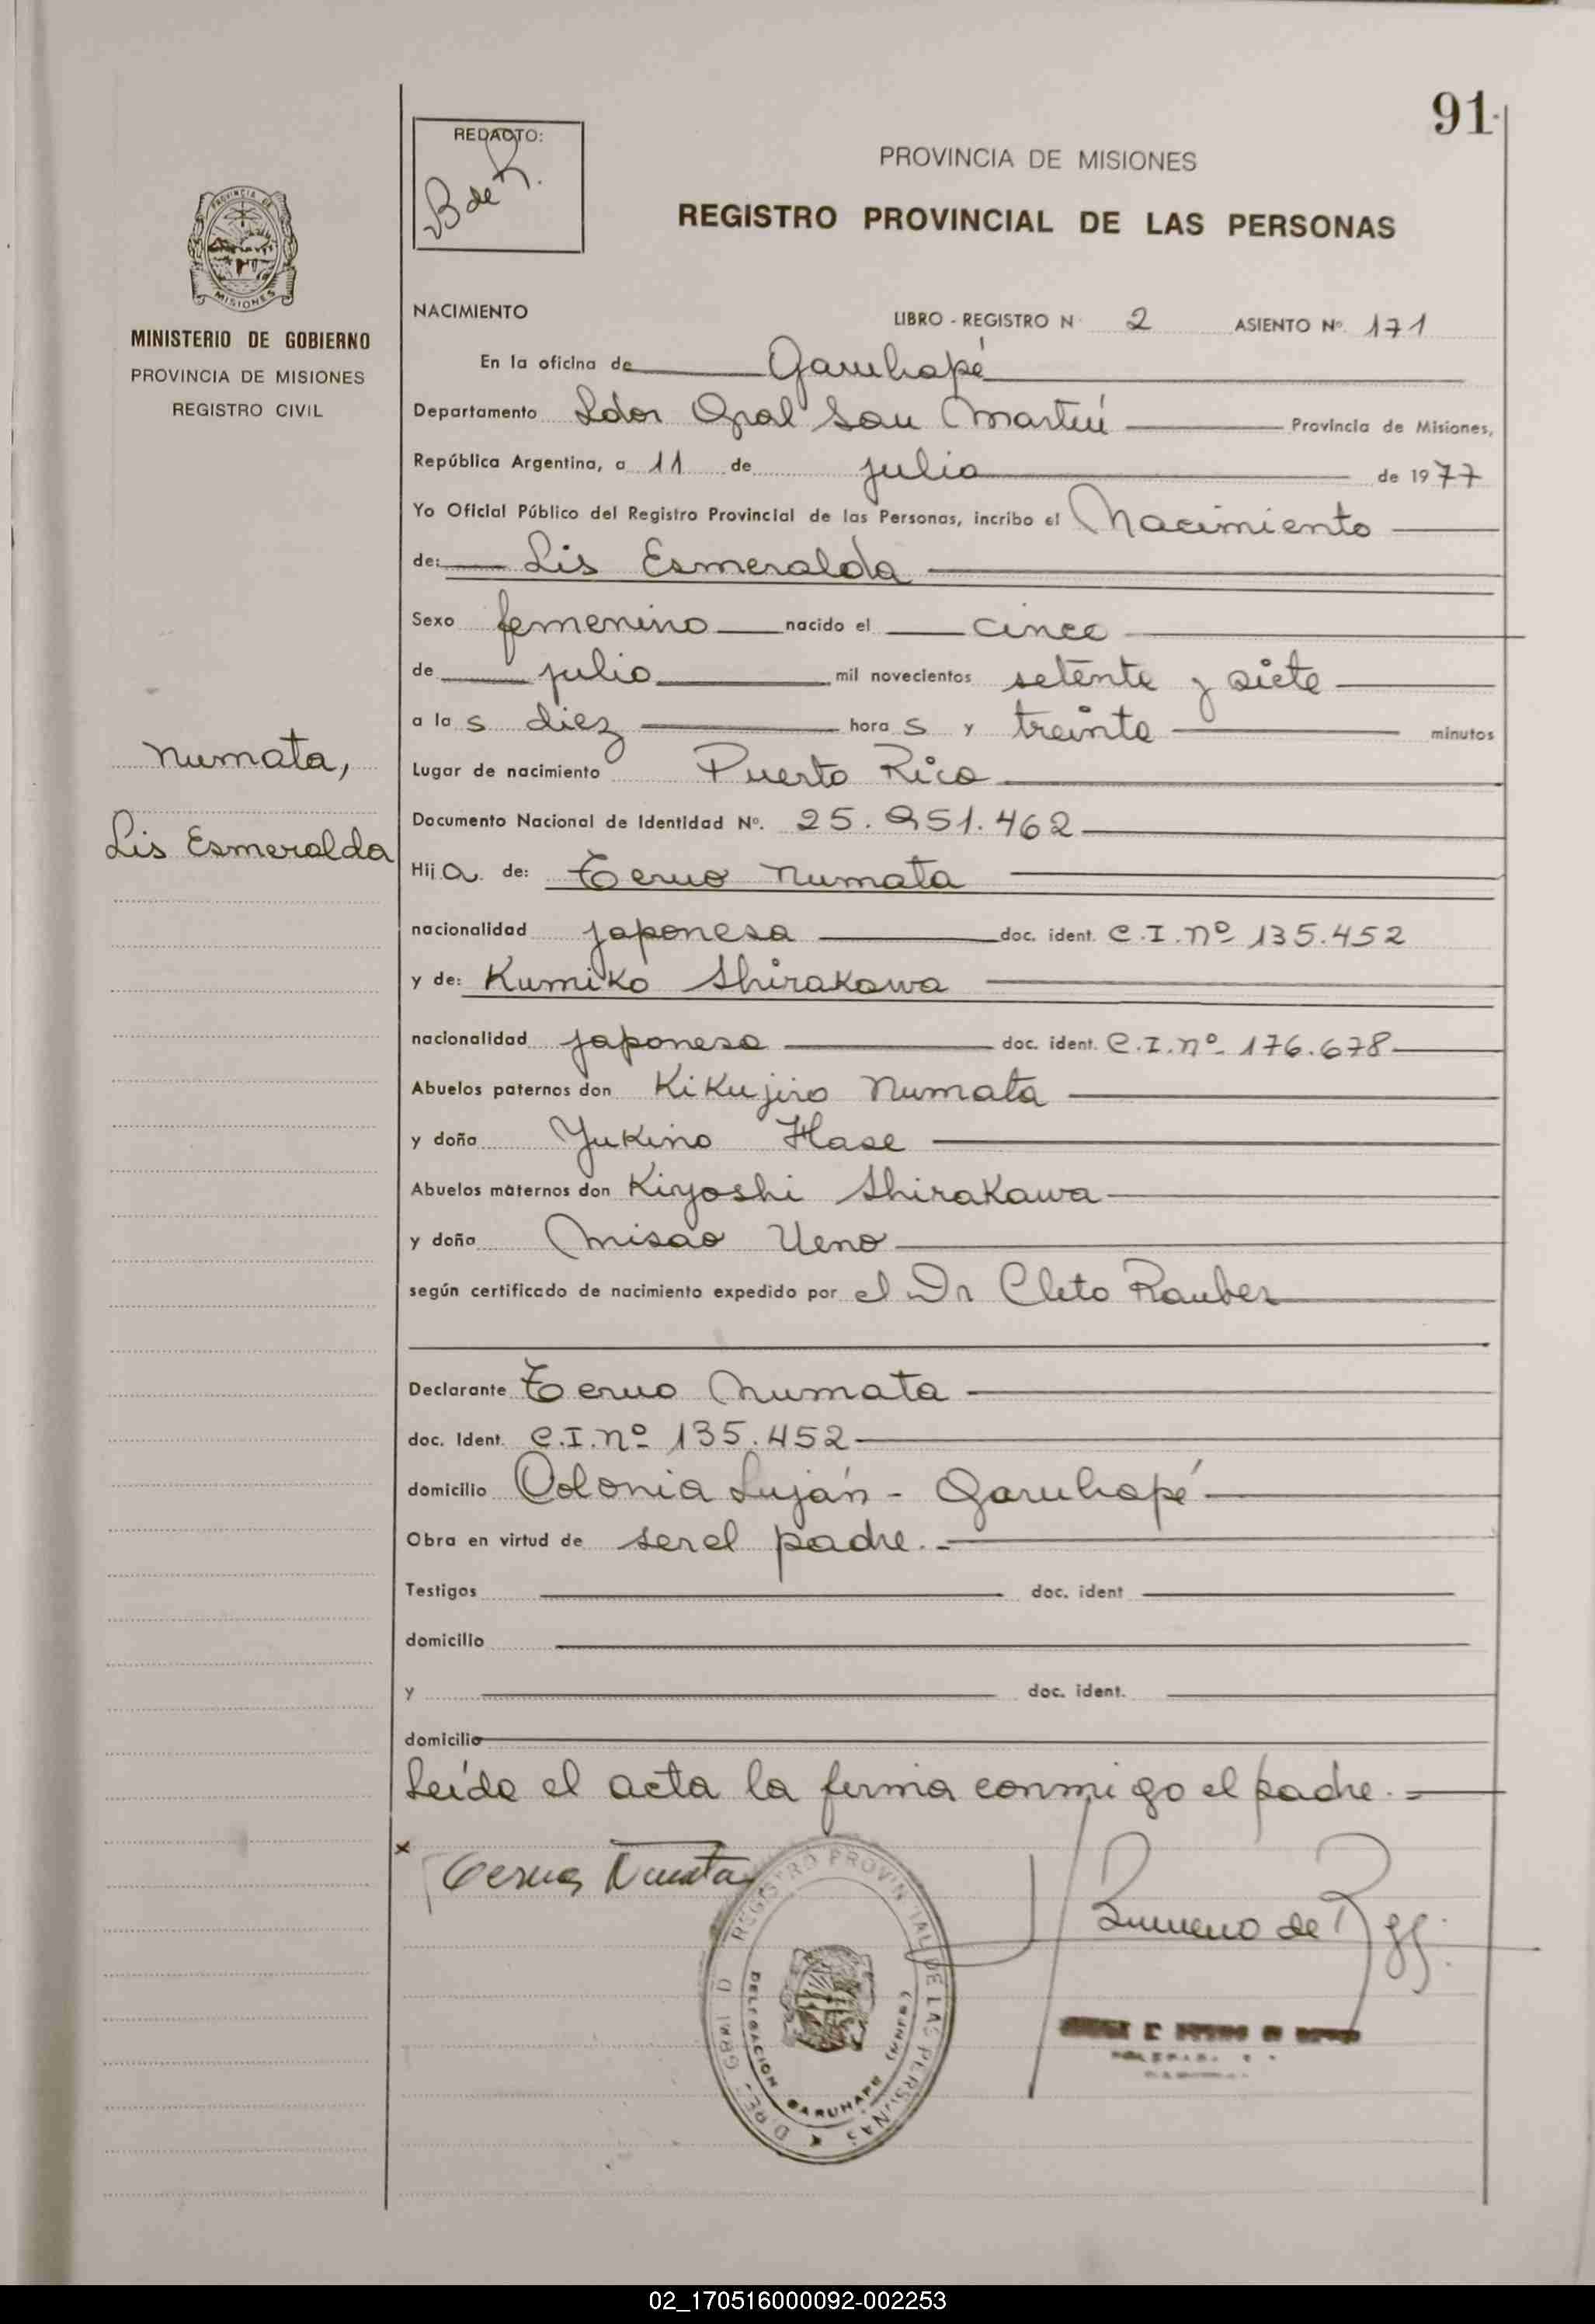 91
REDACTO:
B de R.
PROVINCIA DE MISIONES
REGISTRO PROVINCIAL DE LAS PERSONAS
PROVINCIA DE
MISIONES
MINISTERIO DE GOBIERNO
PROVINCIA DE MISIONES
REGISTRO CIVIL
Numata,
Lis Esmeralda
NACIMIENTO LIBRO - REGISTRO N 2 ASIENTO Nº. 171
En la oficina de Garuhapé
Departamento Ldor Gral San Martín Provincia de Misiones,
República Argentina, a 11 de julio de 1977
Yo Oficial Público del Registro Provincial de las Personas, incribo el Nacimiento
de: Lis Esmeralda
Sexo femenino nacido el cinco
de julio mil novecientos setenta y siete
a la s diez hora s y treinta minutos
Lugar de nacimiento Puerto Rico
Documento Nacional de Identidad Nº. 25.951.462
Hij a de: Teruo Numata
nacionalidad japonesa doc. ident. C.I.nº 135.452
y de: Kumiko Shirakawa
nacionalidad japonesa doc. ident. C.I.nº 176.678
Abuelos paternos don Kikujiro Numata
y doña Yukino Hase
Abuelos maternos don Kiyoshi Shirakawa
y doña Misao Ueno
según certificado de nacimiento expedido por el Dr Cleto Rauber
Declarante Teruo Numata
doc. Ident. C.I.nº 135.452
domicilio Colonia Luján - Garuhapé
Obra en virtud de ser el padre.-
Testigos doc. ident
domicilio
y doc. ident.
domicilio
Leída el acta la firma conmigo el padre.=
x
Teruo Numata
REGISTRO PROVINCIAL DE LAS PERSONAS
DELEGACION GARUHAPE (MNES)
de
02_170516000092-002253